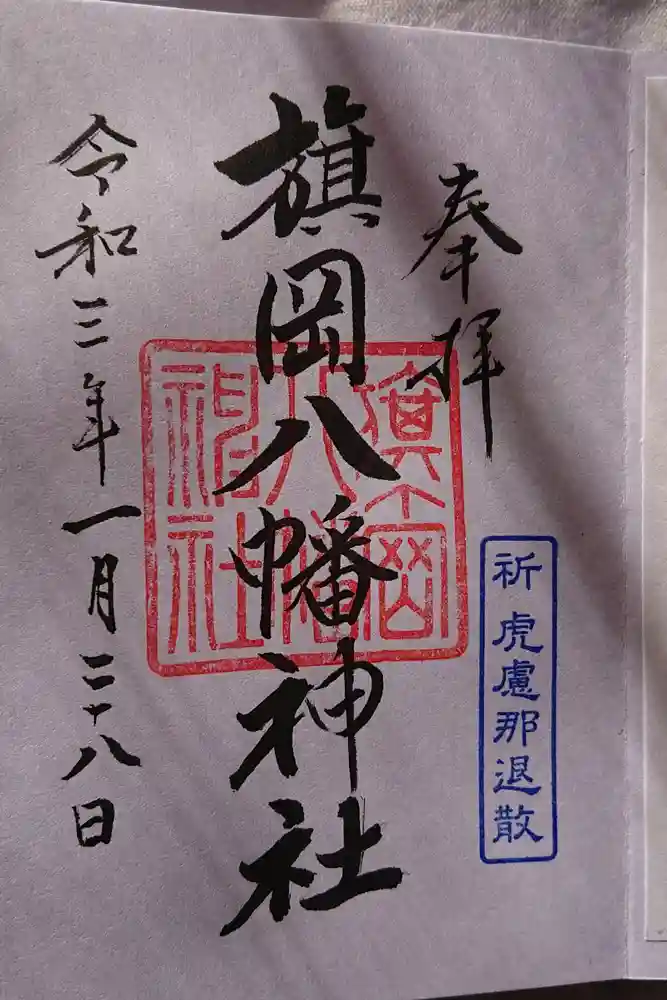 奉拝
祈 虎慮那退散
旗岡八幡神社
旗岡
八幡
神社
令和三年一月二十八日